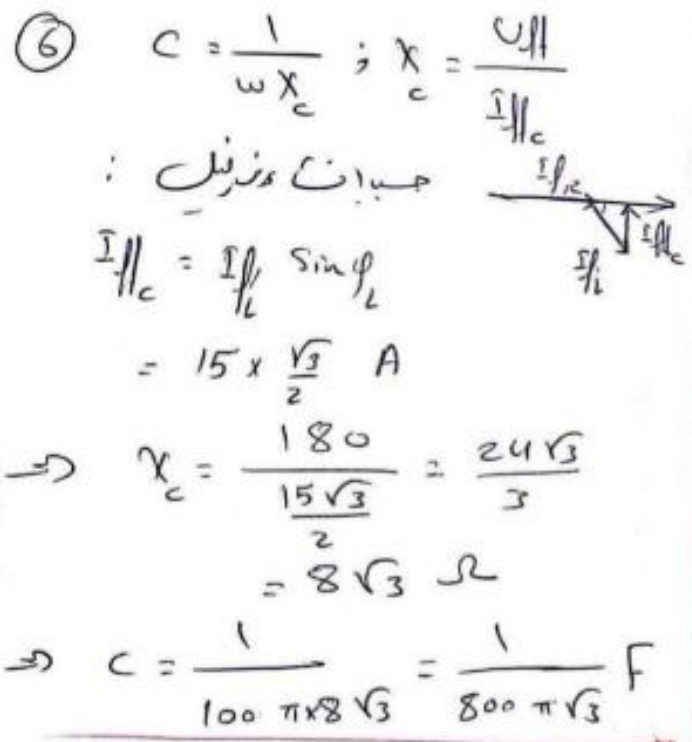 ⑥ C = 1 / (ω X_c) ; X_c = Ueff / Ieff_c
حسب إنشاء فرينل :
Ieff_R
Ieff_c
Ieff_L
Ieff_c = Ieff_L sin φ_L
= 15 × √3/2 A
⇒ X_c = 180 / (15√3/2) = 24√3/3
= 8√3 Ω
⇒ C = 1 / (100 π×8√3) = 1 / (800 π√3) F